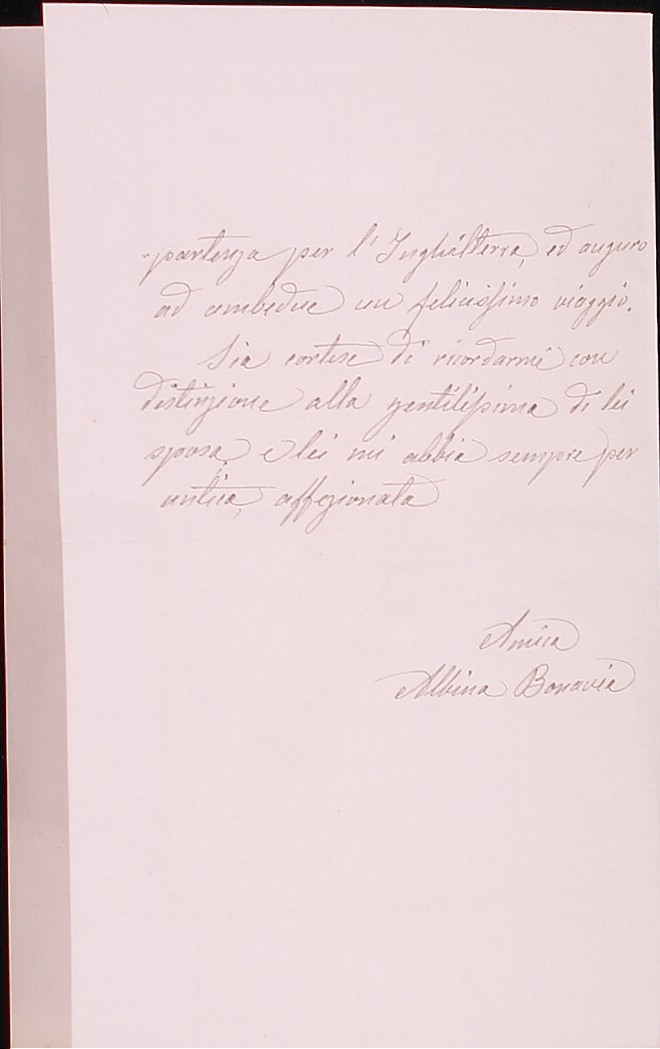 -partenza per l'Inghilterra, ed auguro
ad ambedue un felicissimo viaggio.
Sia cortese di ricordarmi con
distinzione alla gentilissima di lei
sposa, e lei mi abbia sempre per
antica, affezionata
Amica
Albina Bonavia